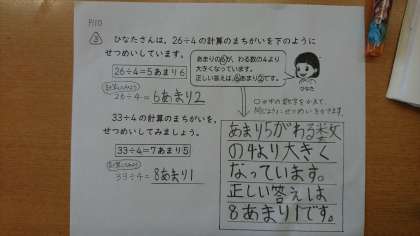 P110
③ ひなたさんは、26÷4の計算のまちがいを下のように
せつめいしています。
26÷4=5あまり6
計算してみよう
26÷4=6あまり2
あまりの⑥が、わる数の4より
大きくなっています。
正しい答えは、⑥あまり②です。
ひなた
33÷4の計算のまちがいを、
せつめいしてみましょう。
33÷4=7あまり5
計算してみよう
33÷4=8あまり1
○の中の数字をかえて、
同じようにせつめいをできます。
あまり5がわる数
の4より大きく
なっています。
正しい答えは
8あまり1です。